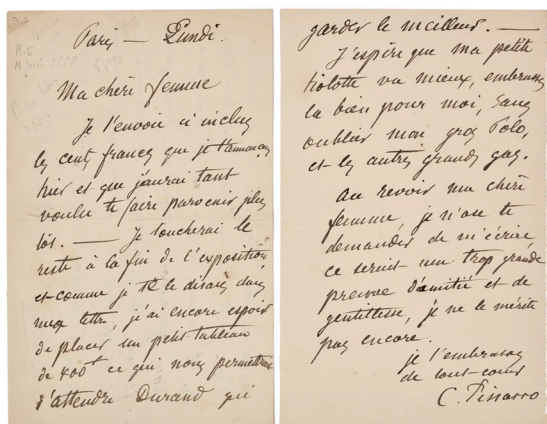 Paris — Lundi.
Ma chère femme
Je t'envoie ci inclus
les cents francs que je t'annonçais
hier et que j'aurai tant
voulu te faire parvenir plus
tôt. — Je toucherai le
reste à la fin de l'exposition
et comme je te le disais dans
ma lettre, j'ai encore espoir
de placer un petit tableau
de 400f ce qui nous permettrai
d'attendre Durand qui
garder le meilleur. —
J'espère que ma petite
va mieux, embrasse
la bien pour moi, sans
oublier mon gros Polo,
et les autres grands gas.
Au revoir ma chère
femme, je n'ose te
demander de m'écrire
ce serait une trop grande
preuve d'amitié et de
gentillesse, je ne le mérite
pas encore.
je t'embrasse
de tout cœur
C. Pissarro